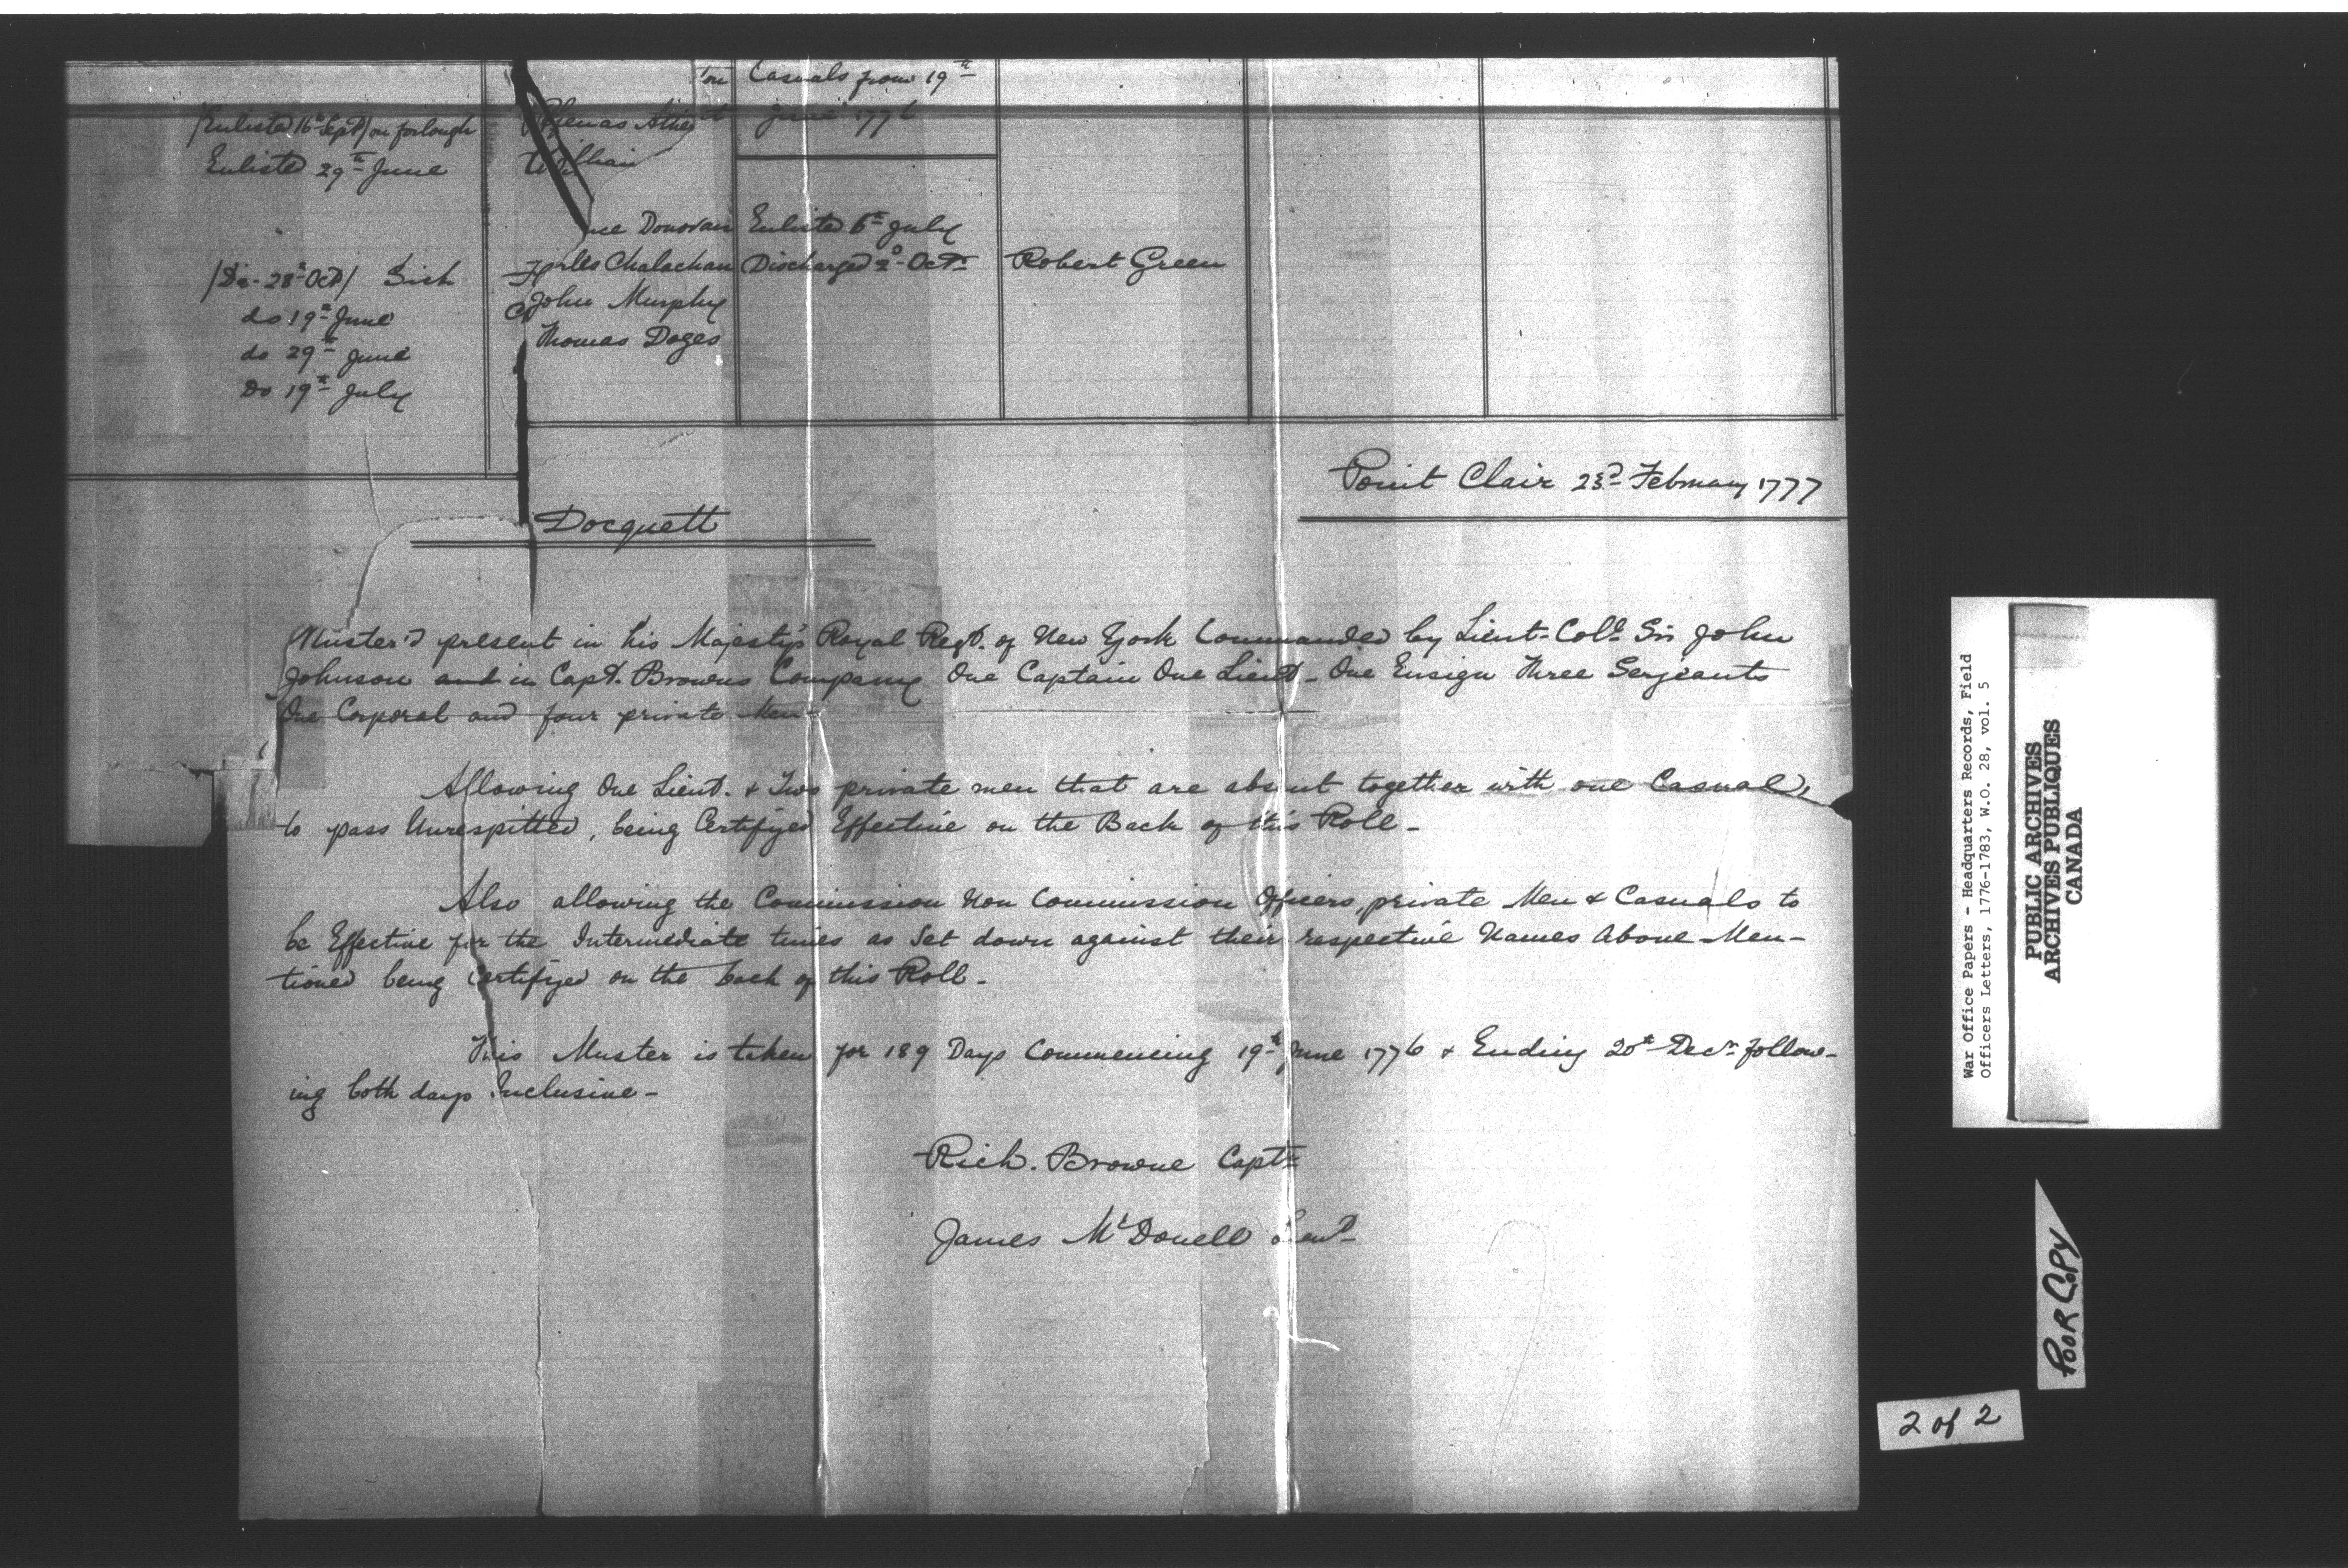 Casuals from 19th
June 1776
(Enlisted 16th Sept) on forlough
Enlisted 29th June
William
Donovan Enlisted 6th July
(Do - 28th Oct) Sick
Chalachan Discharged 2d Octr Robert Green
do 19th June
John Murphy
do 29th June
Thomas Doges
Do 19th July
Point Clair 23d February 1777
Docquett
Muster'd present in his Majesty's Royal Regt. of New York Commanded by Lieut-Coll. Sir John
Johnson and in Capt. Browns Company One Captain One Lieut - One Ensign Three Serjeants
One Corporal and four private Men -
Allowing One Lieut. & Two private men that are absent together with one Casual,
to pass Unrespitted, being Certifyed Effective on the Back of this Roll -
Also allowing the Commission Non Commission Officers, private Men & Casuals to
be Effective for the Intermediate times as Set down against their respective Names Above-Men-
tioned being Certifyed on the back of this Roll -
This Muster is taken for 189 Days Commencing 19th June 1776 & Ending 20th Decr follow-
ing both days Inclusive -
Rich. Browne Captn
James McDonell Lieut
War Office Papers - Headquarters Records, Field
Officers Letters, 1776-1783, W.O. 28, vol. 5
PUBLIC ARCHIVES
ARCHIVES PUBLIQUES
CANADA
POOR COPY
2 of 2